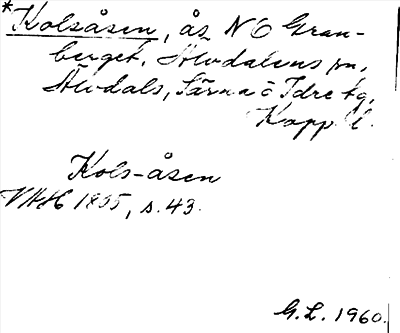 *Kolsåsen, ås NO Gran-
berget, Älvdalens sn,
Älvdals, Särna o Idre tg,
Kopp. l.
Kols-åsen
VAH 1855, s. 43.
G.L. 1960.